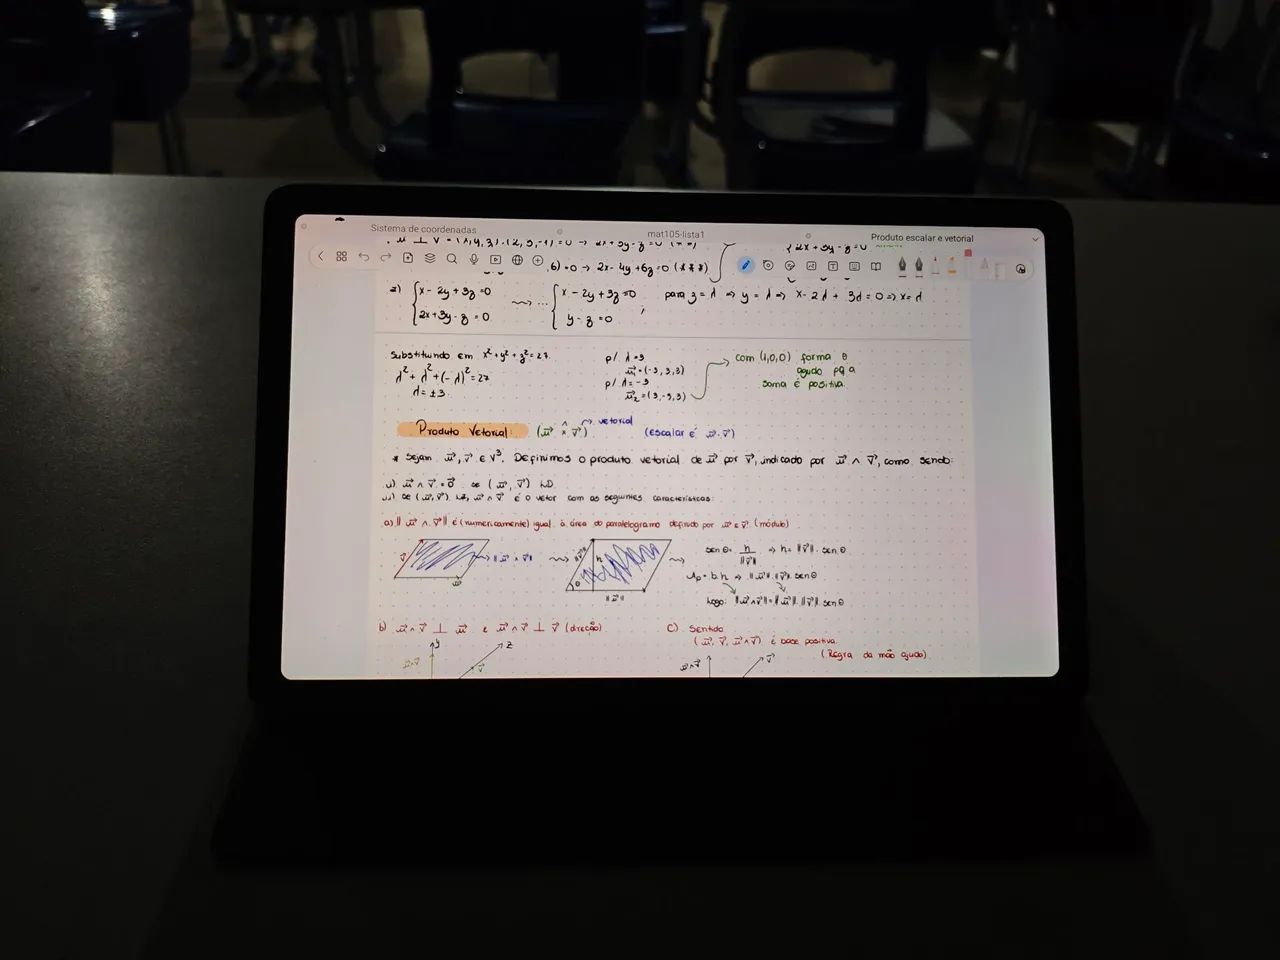 Sistema de coordenadas
mat105-lista1
Produto escalar e vetorial
b) =0 → 2x-4y+6z=0 (***)
2) { x-2y+3z=0
2x+3y-z=0
{ x-2y+3z=0
y-z=0
;
para z=λ ⇒ y=λ ⇒ x-2λ+3λ=0 ⇒ x=λ
Substituindo em x²+y²+z²=27.
λ²+λ²+(-λ)²=27
λ=±3.
p/ λ=3
u⃗₁=(-3,3,3)
p/ λ=-3
u⃗₂=(3,-3,3)
com (1,0,0) forma θ
agudo pq a
soma é positiva.
Produto Vetorial:
(u⃗ × v⃗)
^ → vetorial
(escalar é u⃗·v⃗)
* Sejam u⃗, v⃗ ∈ V³. Definimos o produto vetorial de u⃗ por v⃗, indicado por u⃗ ∧ v⃗, como sendo:
i) u⃗ ∧ v⃗ = 0⃗ se (u⃗, v⃗) LD.
ii) se (u⃗, v⃗) LI, u⃗ ∧ v⃗ é o vetor com as seguintes características:
a) ‖u⃗ ∧ v⃗‖ é (numericamente) igual à área do paralelogramo definido por u⃗ e v⃗. (módulo)
v⃗
u⃗
‖u⃗ ∧ v⃗‖
‖v⃗‖
h
θ
‖u⃗‖
sen θ = h/‖v⃗‖ ⇒ h = ‖v⃗‖. sen θ
Ap = b.h ⇒ ‖u⃗‖.‖v⃗‖.sen θ
Logo: ‖u⃗∧v⃗‖=‖u⃗‖.‖v⃗‖.sen θ
b) u⃗∧v⃗ ⊥ u⃗ e u⃗∧v⃗ ⊥ v⃗ (direção)
y
z
u⃗∧v⃗
v⃗
c) Sentido
(u⃗, v⃗, u⃗∧v⃗) é base positiva.
(Regra da mão
u⃗∧v⃗
v⃗